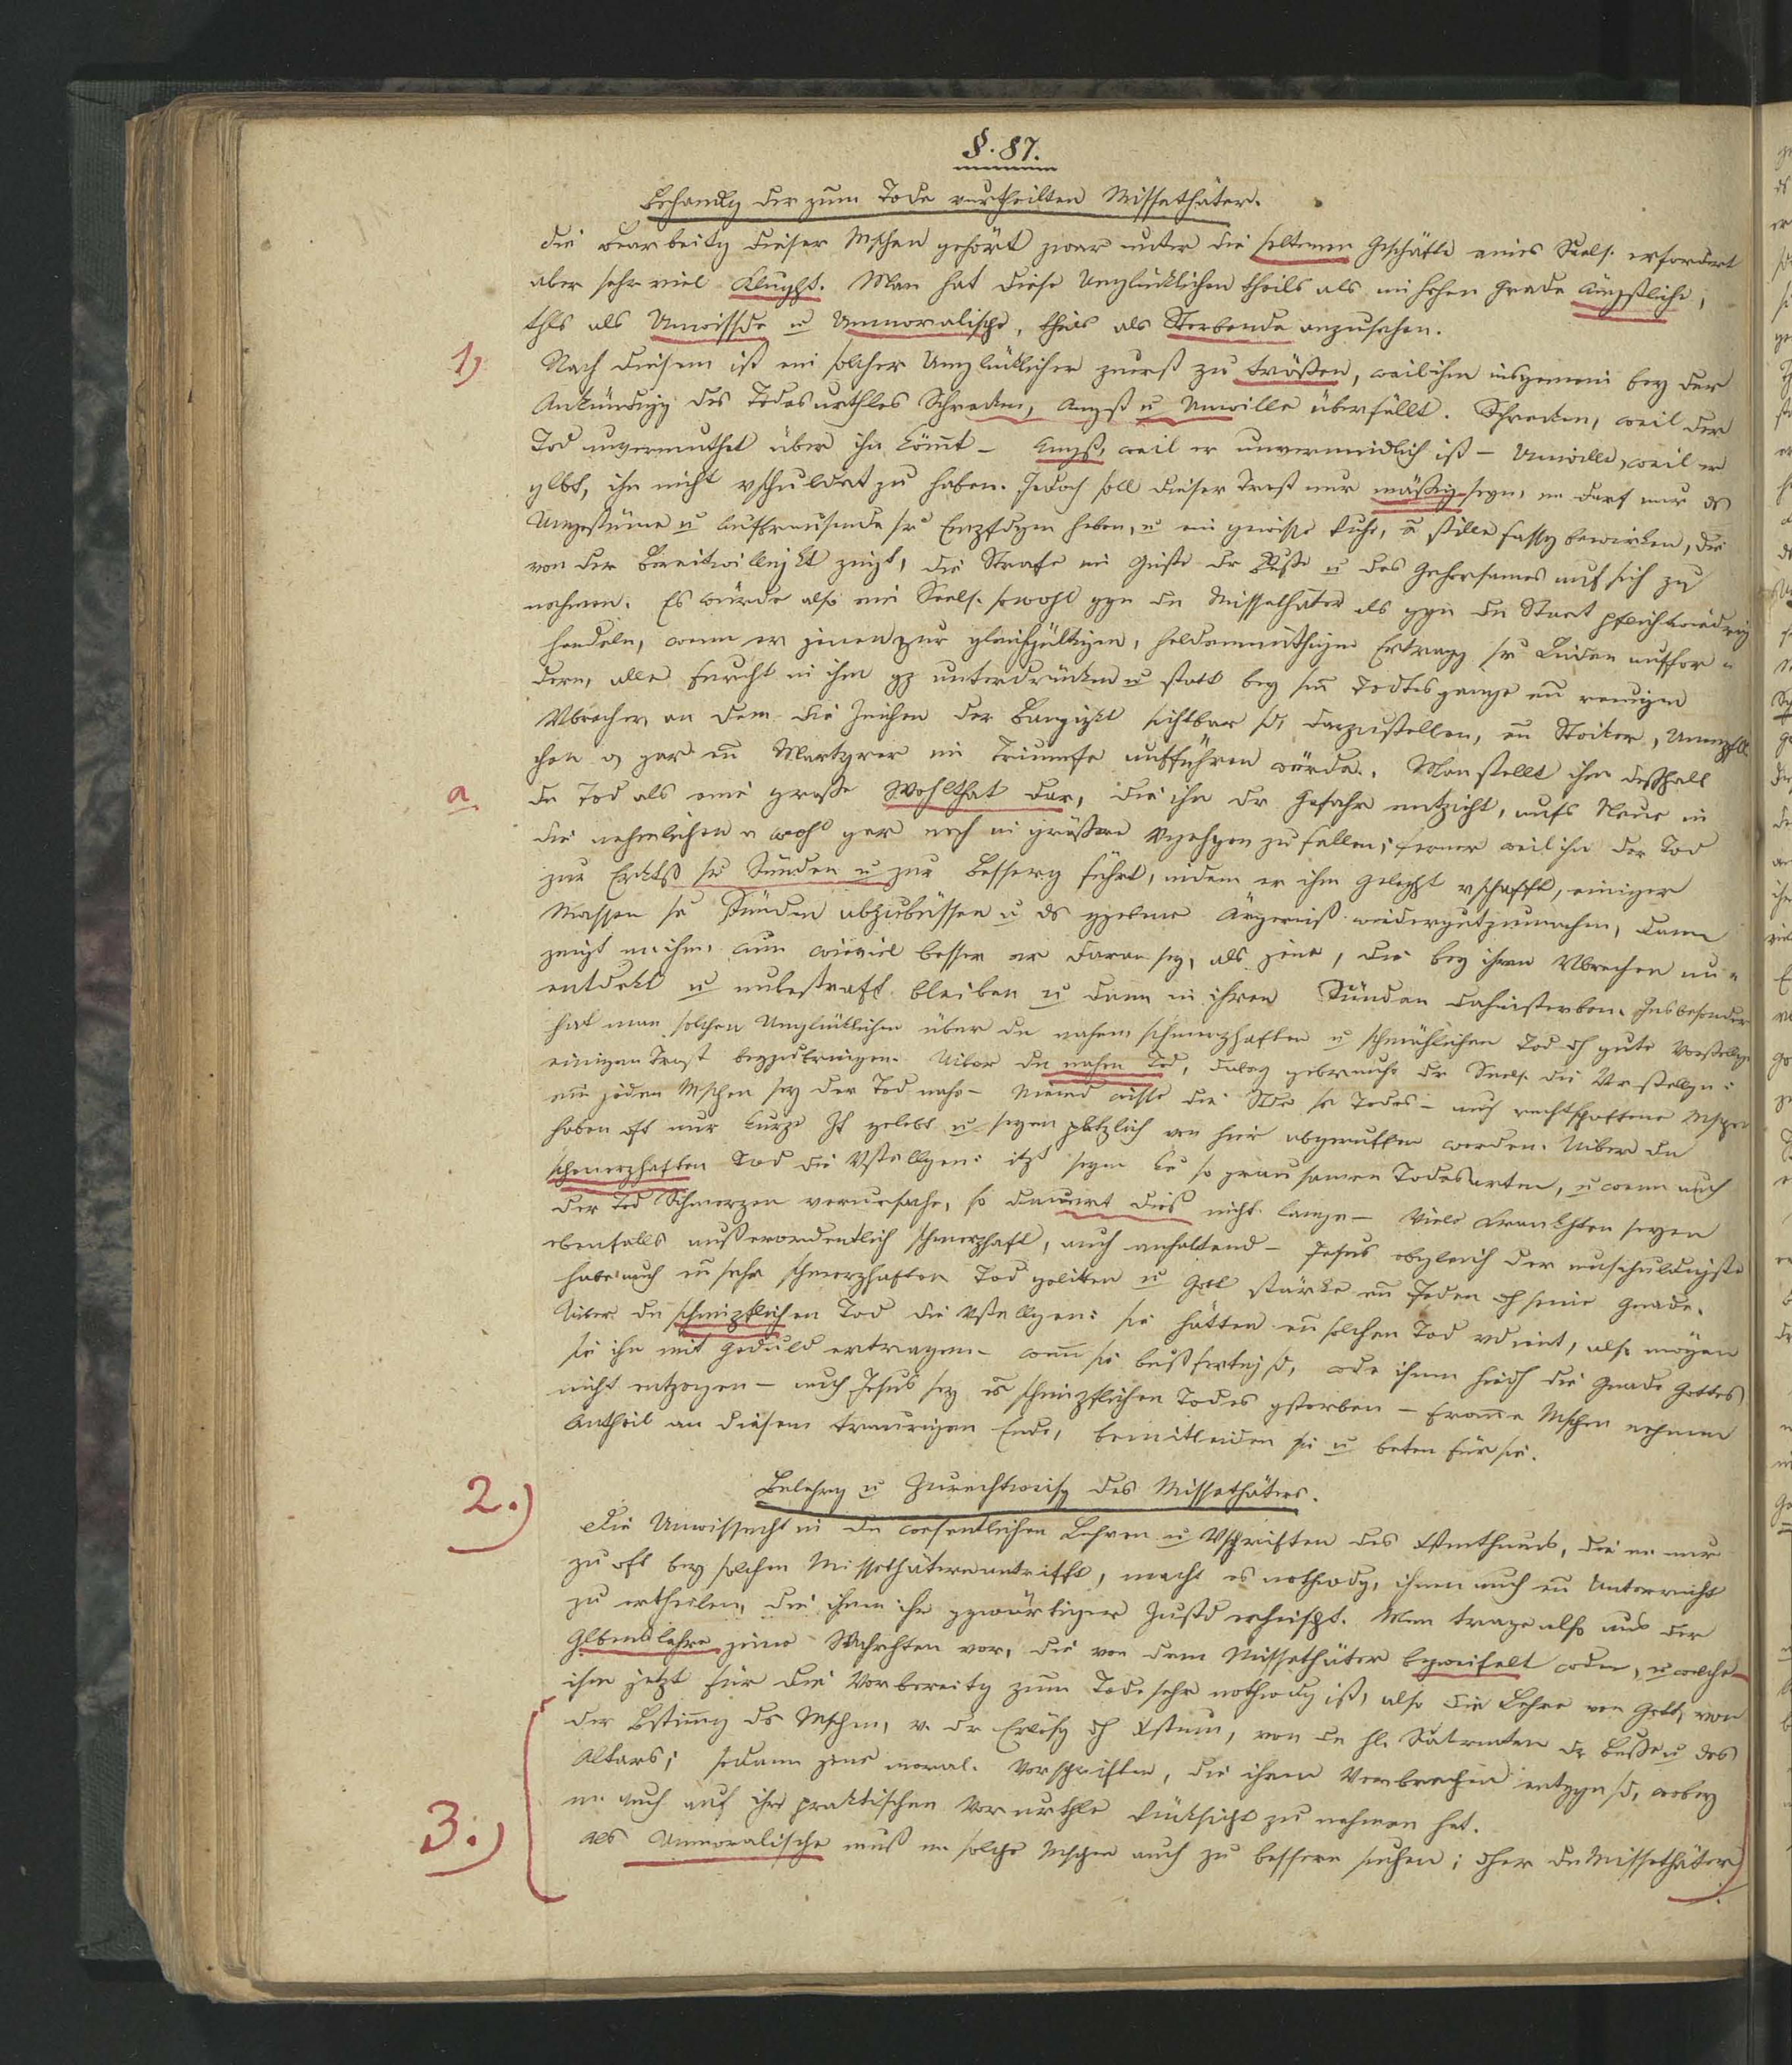 §. 87.
Behandlg der zum Tode verurtheilten Missethäter.
Die Bearbeitg dieser Mschen gehört zwar unter die seltenen Geschäfte eines Seels. erfordert
aber sehr viel Klught. Man hat diese Unglücklichen theils als im hohen Grade Ängstliche,
thls als Unwissde u Unmoralische, theils als Sterbende anzusehen.
1) Nach diesem ist ein solcher Unglücklicher zuerst zu trösten, weil ihn insgemein bey der
Ankündigg des Todesurthles Schrecken, Angst u Unwille überfällt. Schrecken, weil der
Tod unvermuthet über ihn kömt – Angst, weil er unvermeidlich ist – Unwille, weil er
glbt, ihn nicht vschuldet zu haben. Jedoch soll dieser Trost nur mäßig seyn, m darf nur ds
Ungestüme u Aufbrausende sr Empfdgen heben, u ein gewisse Ruhe, u stille Fassg bewirken, die
von der Bereitwilligkt zeigt, die Strafe im Geiste dr Buße u des Gehorsames auf sich zu
nehmen. Es würde also ein Seels. sowohl ggn dn Missethäter als ggn dn Staat pflichtwiedrig
handeln, wenn er jenen zur gleichgültigen, heldenmüthigen Ertragg sr Leiden auffor-
dern, alle Furcht in ihm gz unterdrücken u statt bey sm Todtesgange en reuigen
Vbrecher, an dem die Zeichen der Bangigkt sichtbar sd, darzustellen, en Stoiker, Unempfdl
chen o gar en Martyrer im Triumfe aufführen würde. Man stellt ihm deßhalb
a. dn Tod als eine große Wohlthat dar, die ihn dr Gefahr entzieht, aufs Neue in
die nehmlichen o wohl gar noch in größere Vgehgen zu fallen; ferner weil ihn der Tod
zur Erktß sr Sünden u zur Besserg führt, indem er ihm Geleght vschafft, einiger
Massen se Sünden abzubüssen u ds ggebene Ärgerniß wiedergutzumachen, dann
zeigt m ihm, um wieviel besser er daran sey, als jene, die bey ihren Vbrechen un-
entdekt u unbestraft bleiben u dann in ihren Sünden dahinsterben. Insbesonder
hat man solchen Unglücklichen über dn nahen, schmerzhaften u schmählichen Tod dch gute Vorstellgen
einigen Trost beyzubringen. Uiber dn nahen Tod, dabey gebrauche dr Seels. die Vrstellgn:
ein jeden Mschen sey der Tod nahe – Niemd wisse die Stde ss Todes – auch rechtschaffene Mschen
haben oft nur kurze Zt gelebt u seyen plötzlich von hier abgeruffen worden. Uiber dn
schmerzhaften Tod die Vstellgen: itzt seyn ke so grausamen Todesarten, u wenn auch
der Tod Schmerzen verursache, so dauert dieß nicht lange – Viele Krankhten seyen
ebenfalls außerordentlich schmerzhaft, auch anhaltend – Jesus obgleich der unschuldigste
habe auch en sehr schmerzhaften Tod gelitten u Gott stärke en Jeden dch seine Gnade.
Uiber dn schimpflichen Tod die Vstellgen: sie hätten en solchen Tod vdient, also mögen
sie ihn mit Geduld ertragen – wenn sie bußfertig sd, wde ihnen hiedch die Gnade Gottes
nicht entzogen – auch Jesus sey es schimpflichen Todes gstorben – fromme Mschen nehmen
Antheil an diesem traurigen Ende, bemitleiden sie u beten für sie.
2.) Belehrg u Zurechtweisg des Missethäters.
Die Unwissenht in dn wesentlichen Lehren u Vschriften des Xstenthums, die m nur
zu oft bey solchen Missethätern antrifft, macht es nothwdg, ihnen auch en Unterricht
zu ertheilen, den ihnen ihr ggwärtiger Zustd erheischt. Man trage also aus der
Glbenslehre jene Wahrhten vor, die von dem Missethäter bezweifelt wden, u welche
ihm jetzt für die Vorbereitg zum Tode sehr nothwdg ist, also die Lehre von Gott, von
der Bstimmg ds Mschen, v. dr Erlösg dch Xstum, von dn hl. Sakrmten dr Buße u des
Altars; sodann jene moral. Vorschriften, die ihren Verbrechen entggn sd, wobey
m. auch auf ihre praktischen Vorurthle Rücksicht zu nehmen hat.
3.) Als Unmoralische muß m solche Mschen auch zu bessern suchen; dher dn Missethäter